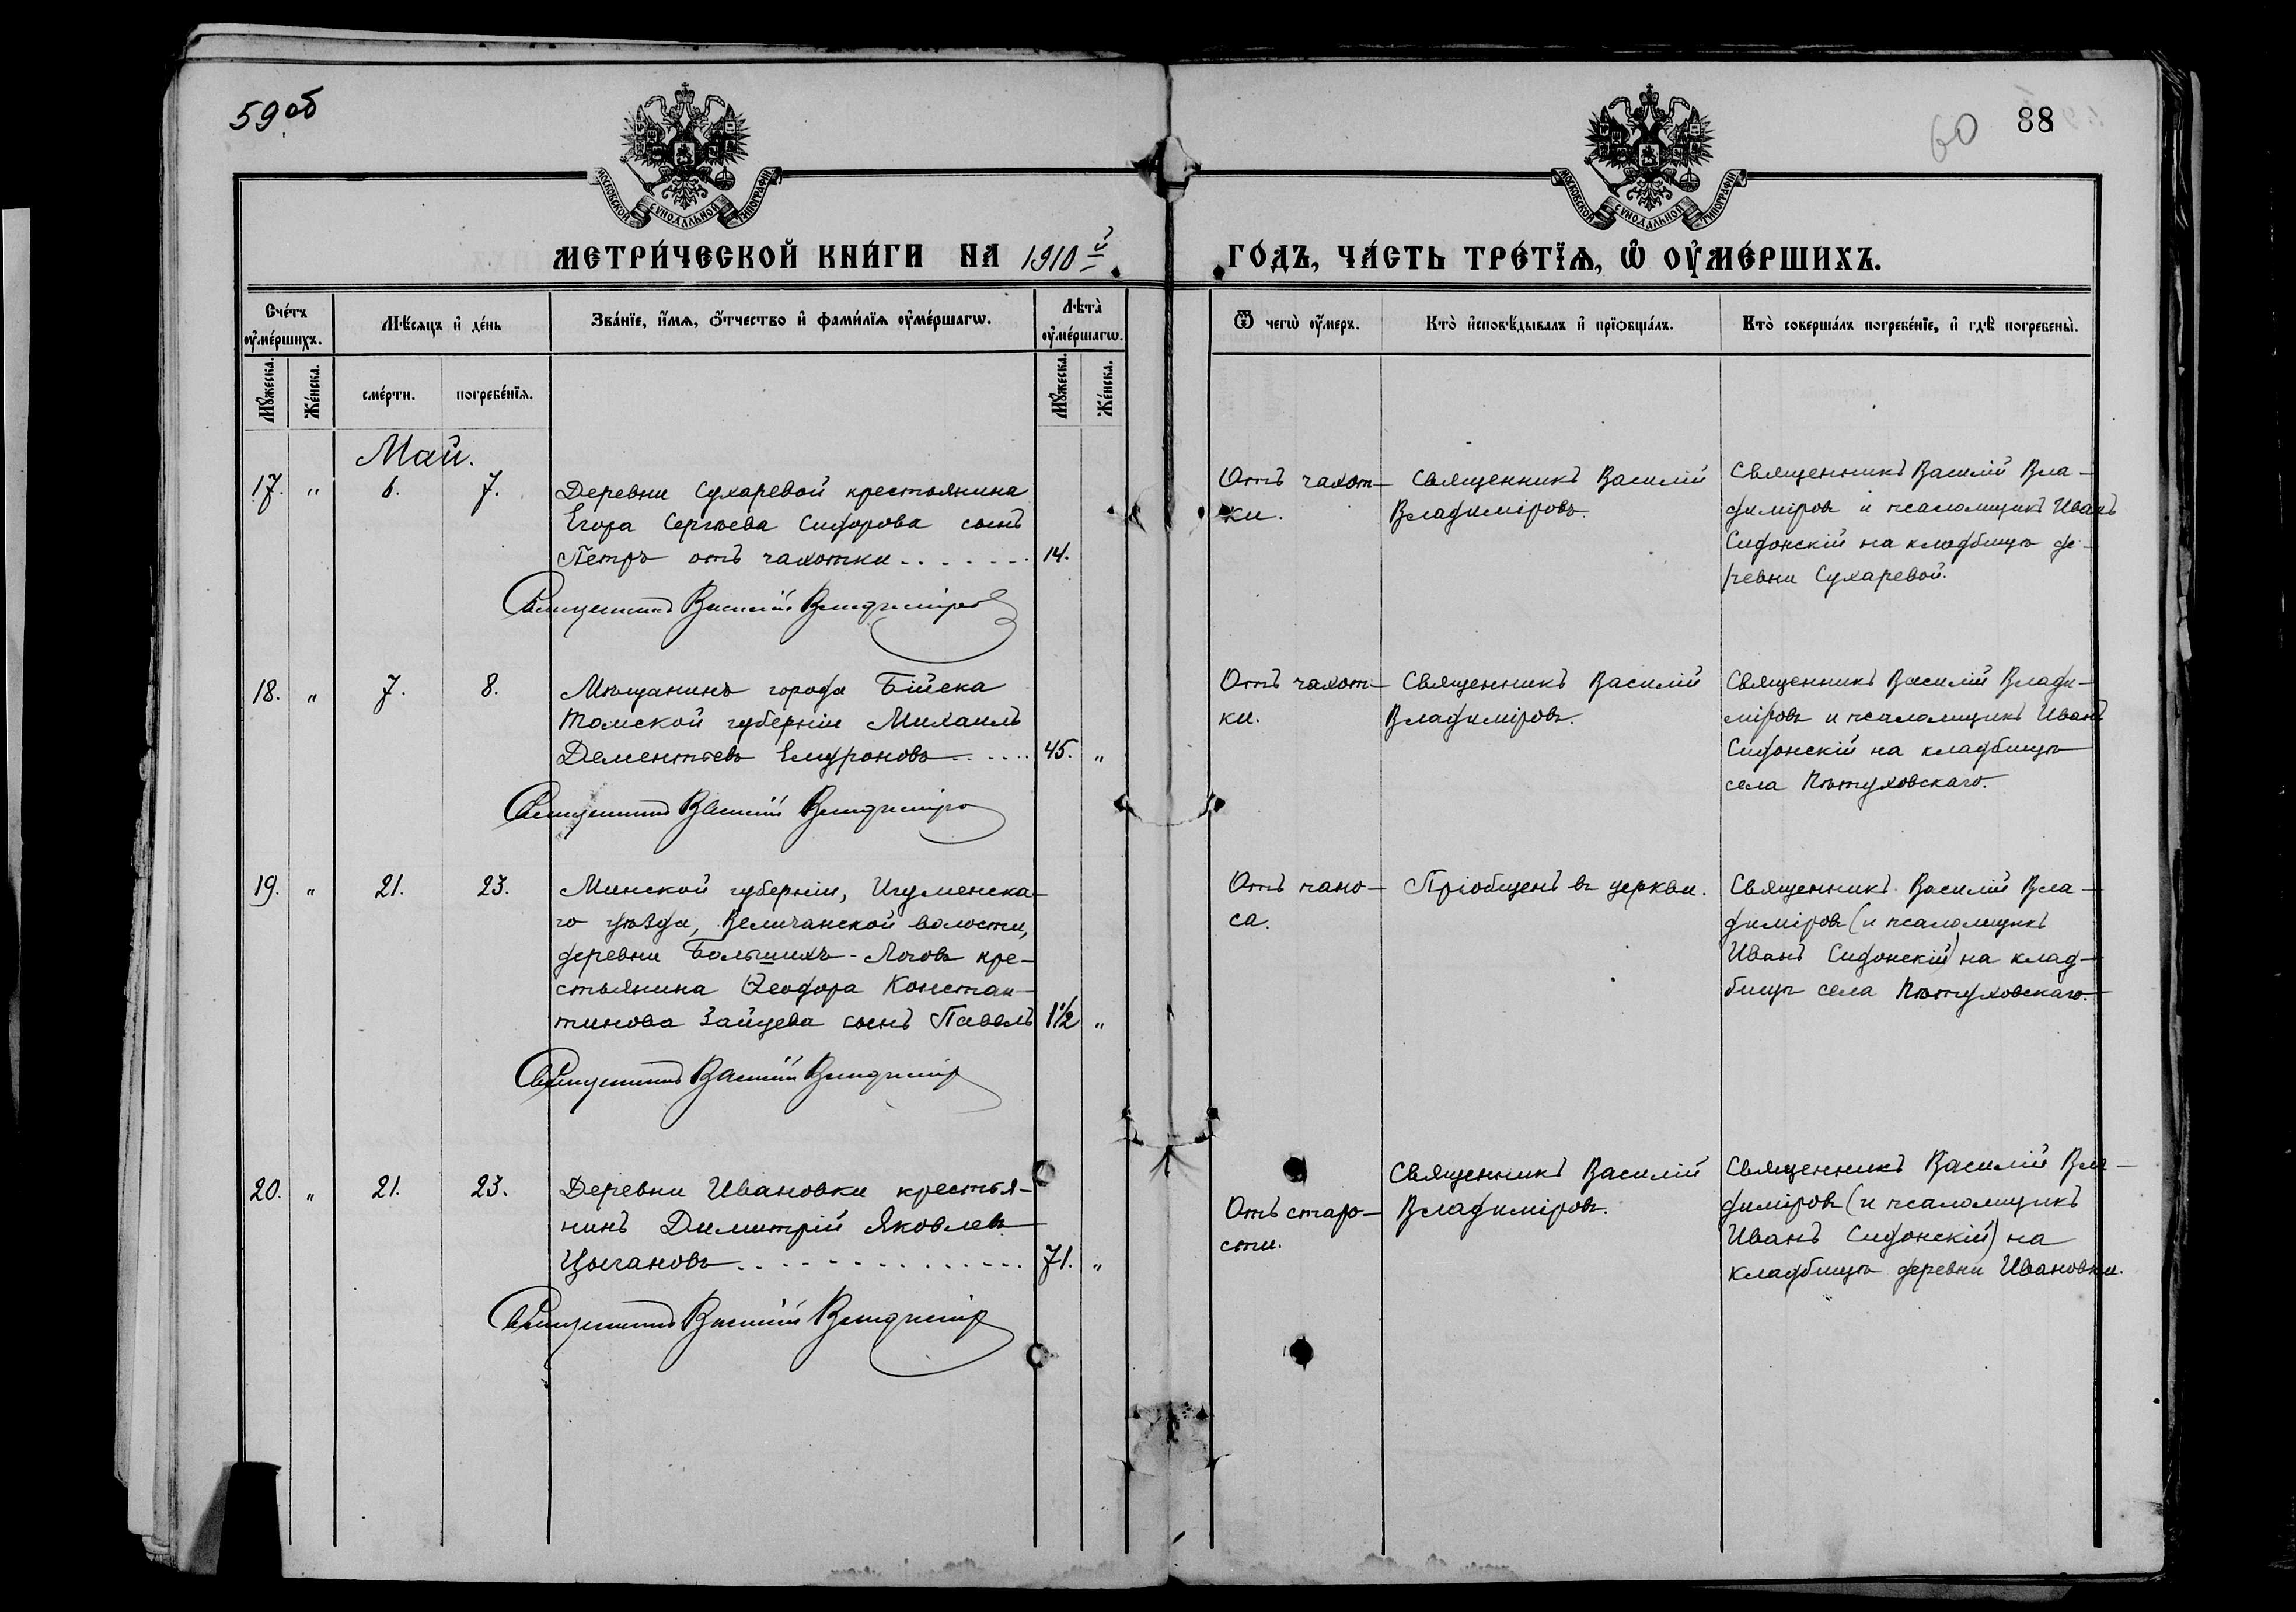 59 об
60
88
МОСКОВСКОЙ СѴНОДАЛЬНОЙ ТИПОГРАФІИ
МОСКОВСКОЙ СѴНОДАЛЬНОЙ ТИПОГРАФІИ
МЕТРИ́ЧЕСКОЙ КНИ́ГИ НА 1910й
ГО́ДЪ, ЧА́СТЬ ТРЕ́ТЇѦ, Ѡ҆ ОУ҆МЕ́РШИХЪ.
Сче́тъ оу҆ме́ршихъ.
Мѣ́сяцъ и҆ де́нь
Зва́нїе, и҆́мѧ, ѻ҆́тчество и҆ фами́лїѧ оу҆ме́ршагѡ.
Лѣта̀ оу҆ме́ршагѡ.
Ѿ чегѡ̀ оу҆́меръ.
Кто̀ и҆сповѣ́дывалъ и҆ прїѻбща́лъ.
Кто̀ соверша́лъ погребе́нїе, и҆ гдѣ̀ погребены̀.
Му́жеска.
Же́нска.
сме́рти.
погребе́нїѧ.
Му́жеска.
Же́нска.
Май.
17. " 6. 7.
Деревни Сухаревой крестьянина
Егора Сергѣева Сидорова сынъ
Петръ отъ чахотки . . . . . . . 14.
Священникъ Василій Владиміров
Отъ чахот-
ки.
Священникъ Василій
Владиміровъ.
Священникъ Василій Вла-
диміровъ и псаломщикъ Иванъ
Сидонскій на кладбищѣ де-
ревни Сухаревой.
18. " 7. 8.
Мѣщанинъ города Бійска
Томской губерніи Михаилъ
Дементьевъ . . . . . 45. "
Священникъ Василій Владиміро
Отъ чахот-
ки.
Священникъ Василій
Владиміровъ.
Священникъ Василій Влади-
міровъ и псаломщикъ Иванъ
Сидонскій на кладбищѣ
села Пѣтуховскаго.
19. " 21. 23.
Минской губерніи, Игуменска-
го уѣзда, Величанской волости,
деревни Большихъ-Логовъ кре-
стьянина Ѳеодора Констан-
тинова Зайцева сынъ Павелъ 1½ "
Священникъ Василій Владимір
Отъ поно-
са.
Пріобщенъ въ церкви.
Священникъ Василій Вла-
диміровъ (и псаломщикъ
Иванъ Сидонскій) на клад-
бищѣ села Пѣтуховскаго.
20. " 21. 23.
Деревни Ивановки крестья-
нинъ Димитрій Яковлевъ
Цыгановъ . . . . . . . . . . . . . . 71. "
Священникъ Василій Владимір
Отъ старо-
сти.
Священникъ Василій
Владиміровъ.
Священникъ Василій Вла-
диміровъ (и псаломщикъ
Иванъ Сидонскій) на
кладбищѣ деревни Ивановки.